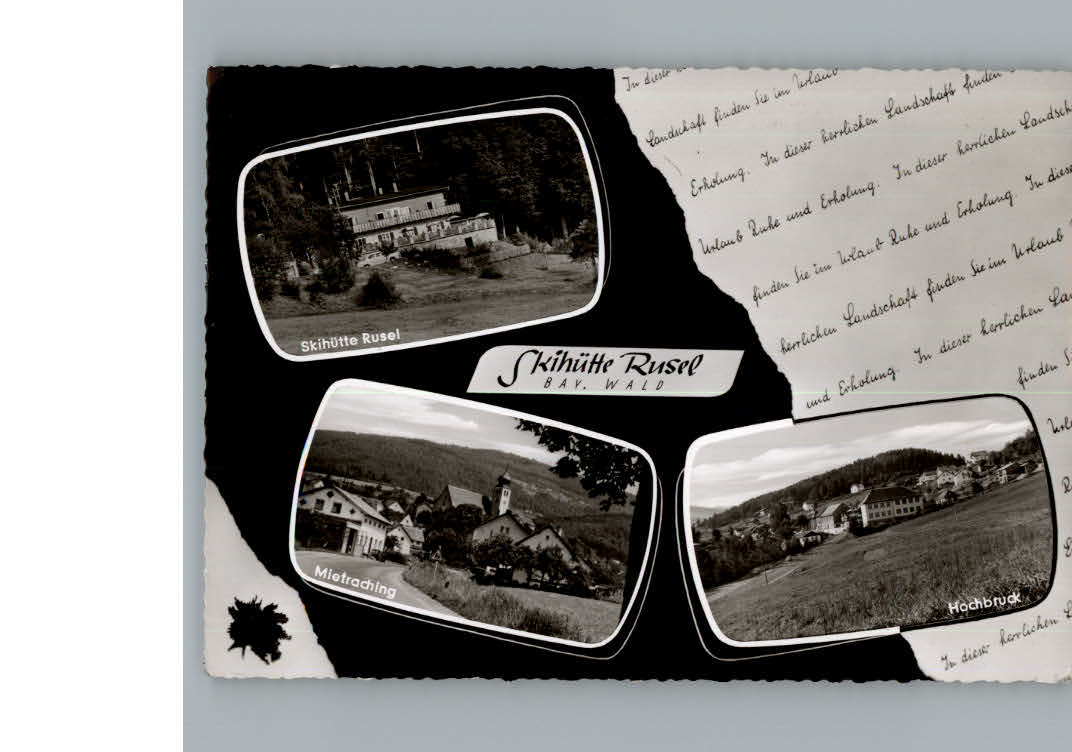 In dieser
Landschaft finden Sie im Urlaub
Erholung. In dieser herrlichen Landschaft finden
Urlaub Ruhe und Erholung. In dieser herrlichen Landsch
finden Sie im Urlaub Ruhe und Erholung. In diese
herrlichen Landschaft finden Sie im Urlaub
und Erholung. In dieser herrlichen La
finden Si
Url
In dieser herrlichen L
Skihütte Rusel
Skihütte Rusel
BAY. WALD
Mietraching
Hochbruck